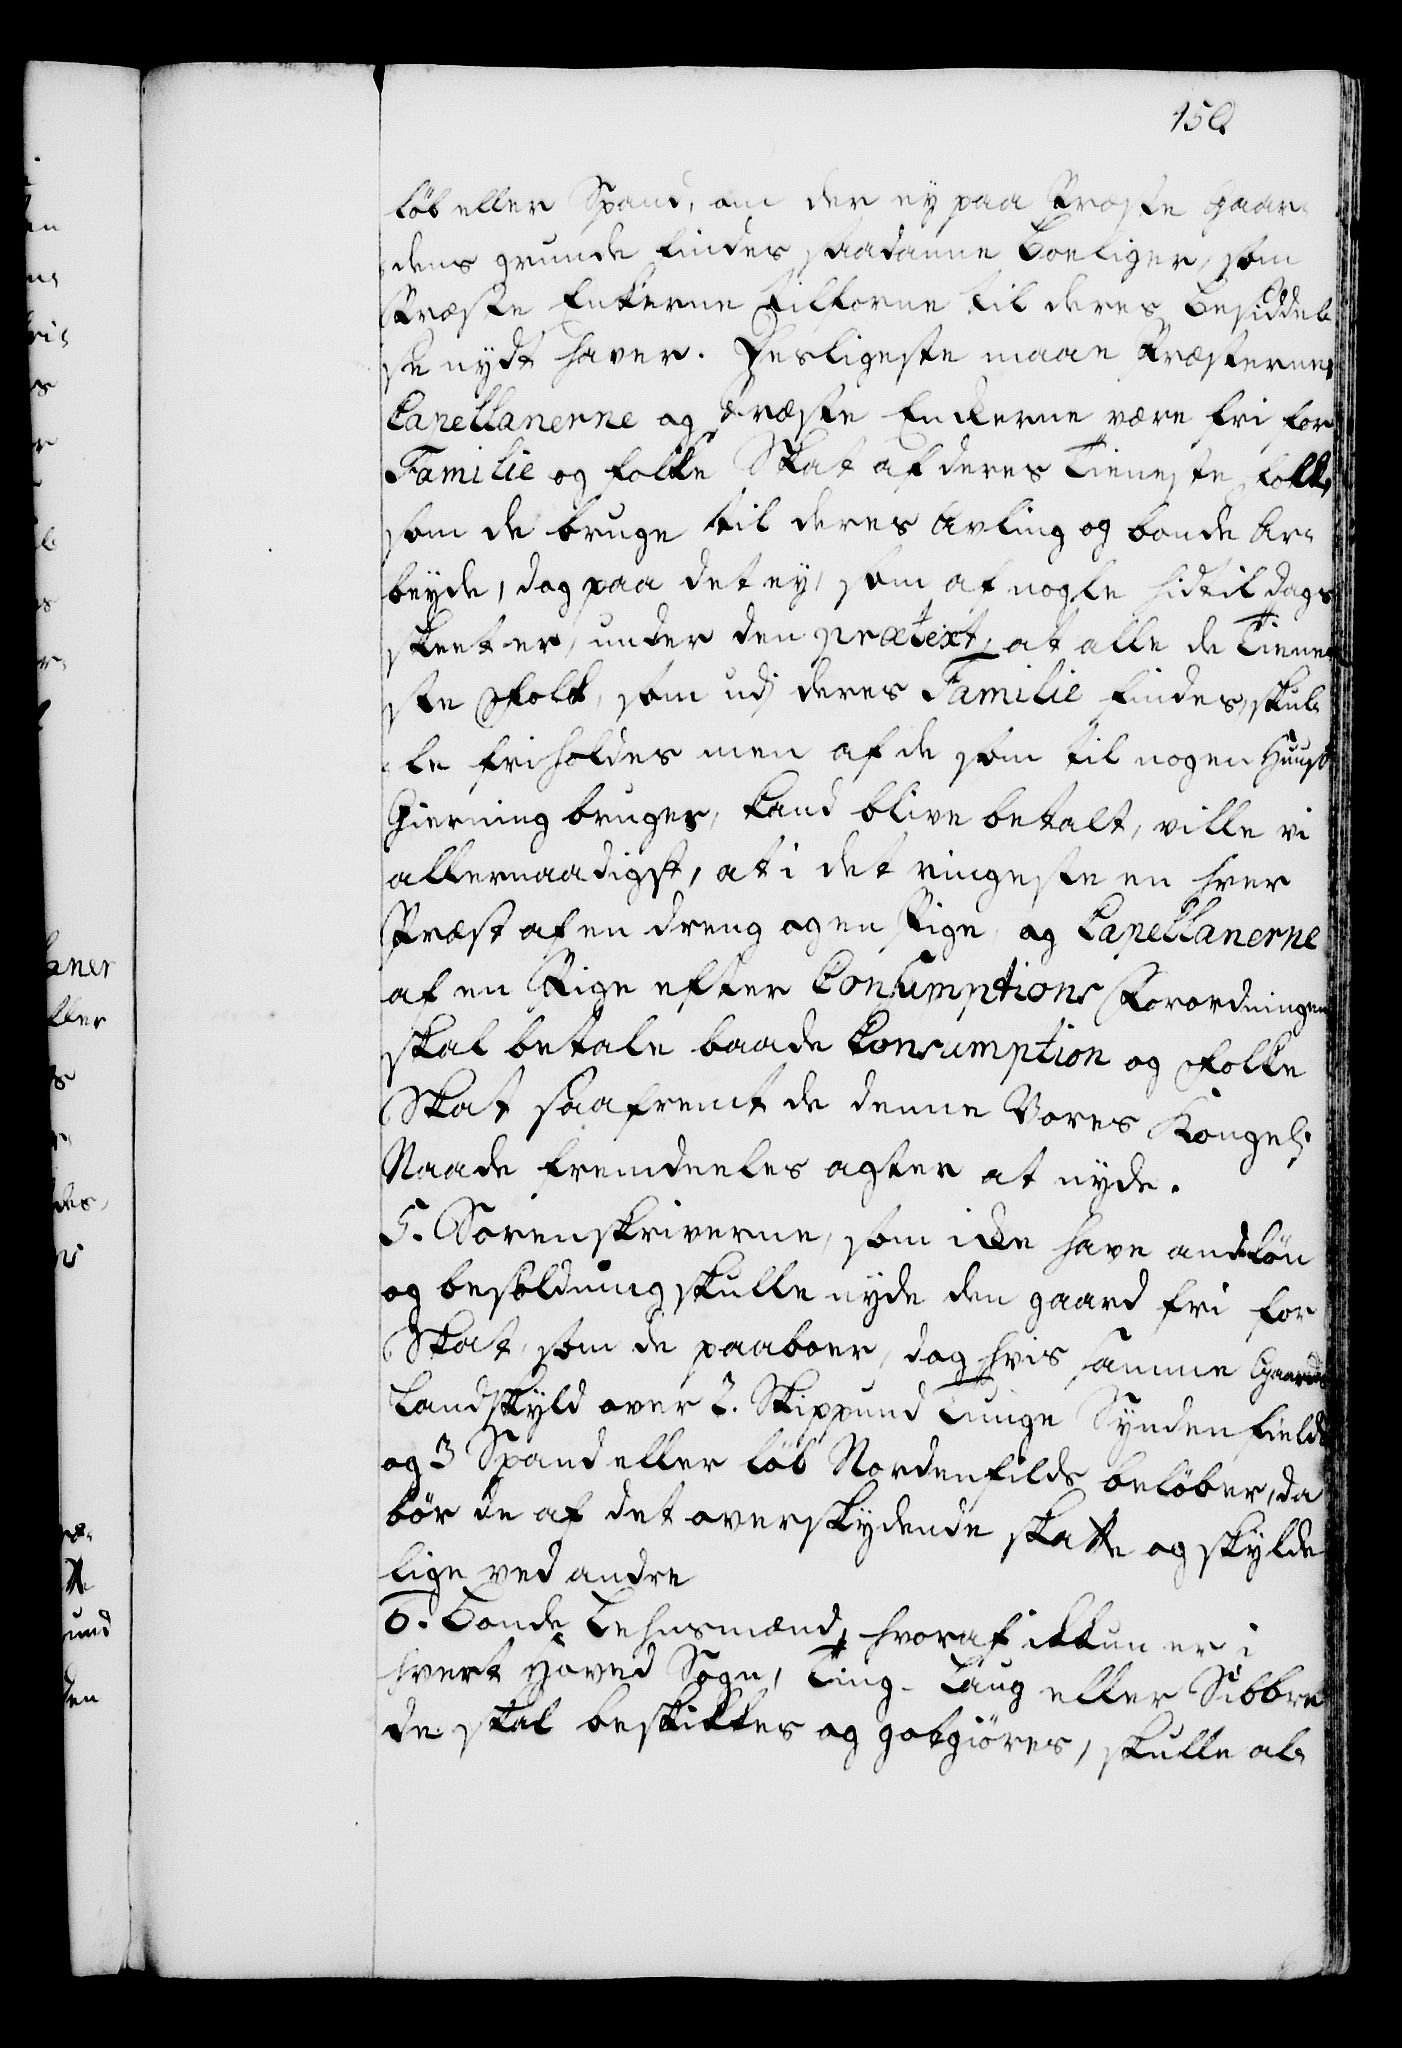 150.
löb eller Spand, om der ey paa Præste Gaar-
dens grunde findes saadanne Boeliger, som
Præste Enkerne tilforne til deres Besiddel-
se nydt haver. Desligeste maae Præsterne,
Capellanerne og Præste Enkerne være fri for
Familie og folke Skat af deres Tieneste folk,
som de bruge til deres Avling og bonde Ar-
beyde, dog paa det ey, som af nogle hidtil dags
skeet er, under den prætext, at alle de Tiene-
ste Folk, som udj deres Familie findes, skul-
le friholdes men af de som til nogen Huus
Gierning bruges, kand blive betalt, ville vi
allernaadigst, at i det ringeste en hver
Præst af en dreng og en Pige, og Capellanerne
af en Pige efter Consumptions Forordningen
skal betale baade Consumption og Folke
Skat saafremt de denne Vores Kongel:
Naade fremdeeles agter at nyde.
5. Sorenskriverne, som ikke have and lön
og besoldning skulle nyde den gaard fri for
Skat, som de paaboer, dog hvis samme Gaards
Landskyld over 2. Skippund Tunge Syndenfields
og 3 Spand eller löb Nordenfilds belöber, da
bör de af det overskydende skatte og skylde
lige ved andre
6. Bonde Lehnsmænd, hvoraf ikkun er i
hvert Hoved Sogn, Ting-Laug eller Sibbre
de skal beskikkes og godgiöres, skulle al-
laner
eller
des,
und
den